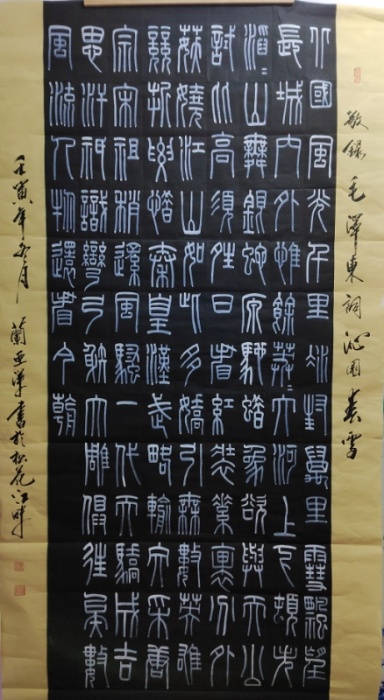 敬錄毛澤東詞沁園春雪
北國風光千里冰封萬里雪飄望
長城內外惟餘莽莽大河上下頓失
滔滔山舞銀蛇原馳蠟象欲與天公
試比高須晴日看紅裝素裹分外
妖嬈江山如此多嬌引無數英雄
競折腰惜秦皇漢武略輸文采唐
宗宋祖稍遜風騷一代天驕成吉
思汗祇識彎弓射大雕俱往矣數
風流人物還看今朝
壬寅年冬月 蘭亞書於松花江畔